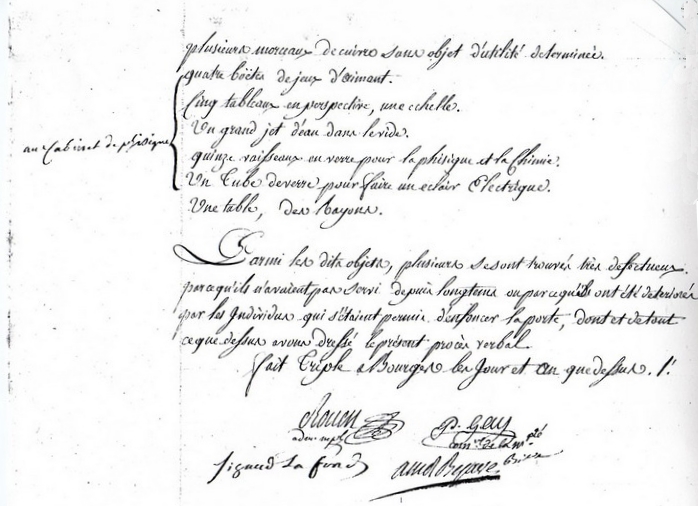 plusieurs morceaux de cuivre sans objet d'utilité determinée.
quatre boëtes de jeux d'aimant.
Cinq tableaux en perspective, une echelle.
Un grand jet d'eau dans le vide.
au Cabinet de phisique
quinze vaisseaux en verre pour la phisique et la Chimie.
Un Tube de verre pour faire un eclair Electrique.
Une table, des Rayons.
Parmi les dits objets, plusieurs se sont trouvés très defectueux
parce qu'ils n'avaient pas servi depuis longtems ou parce qu'ils ont été deteriorés
par les Individus qui s'étaient permis d'enfoncer la porte, dont et de tout
ce que dessus avons dressé le présent procès verbal
fait Triple a Bourges les Jour et an que dessus.
Rouen
P.
Sigaud La fond